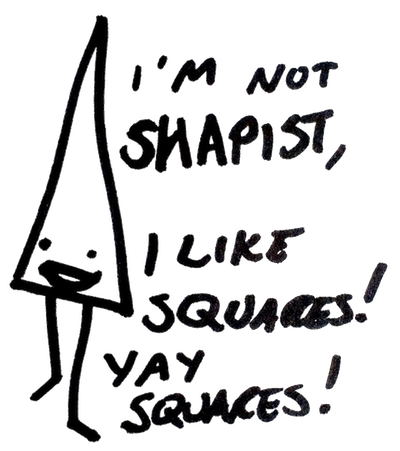 I'M NOT
SHAPIST,
I LIKE
SQUARES!
YAY
SQUARES!